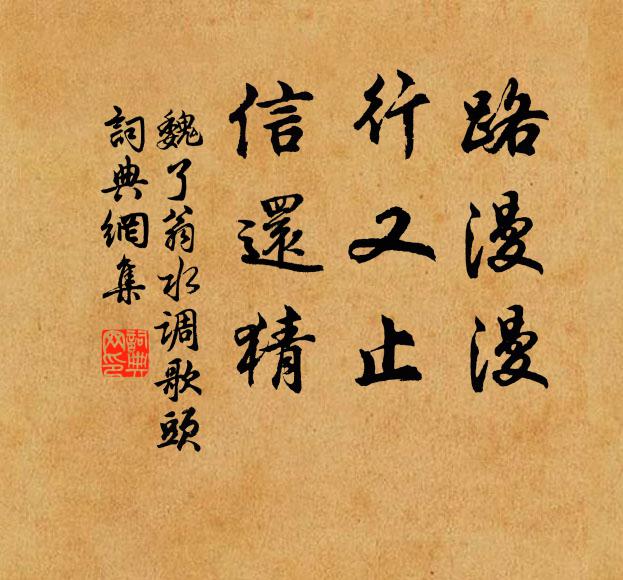 路漫漫
行又止
信還猜
魏了翁水调歌頭
詞典網集
詞典网印